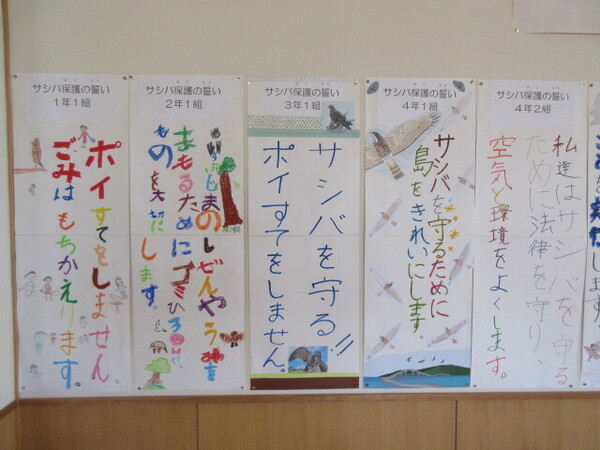 サシバ保護の誓い
1年1組
ポイすてをしません
ごみはもちかえります。
サシバ保護の誓い
2年1組
まもるためにゴミひろいや、
ものを大切にします。
サシバ保護の誓い
3年1組
サシバを守る!!
ポイすてをしません。
サシバ保護の誓い
4年1組
サシバを守るために
島をきれいにします
サシバ保護の誓い
4年2組
私達はサシバを守る
ために法律を守り、
空気と環境をよくします。